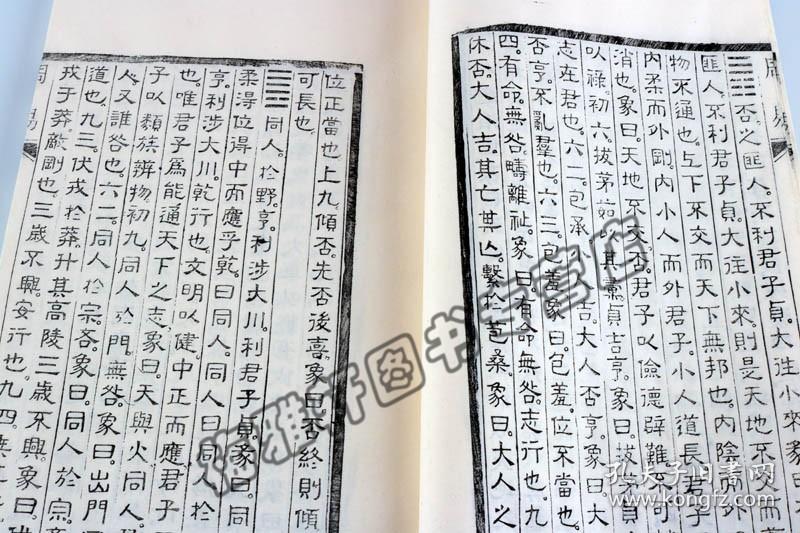 周易
䷋否之匪人。不利君子貞。大往小來彖
匪人。不利君子貞。大往小來。則是天地不交
物不通也。上下不交而天下無邦也。內陰而
內柔而外剛。內小人而外君子。小人道長。君子
消也。象曰。天地不交。否。君子以儉德辟難。不可
以祿。初六。拔茅茹。以其彙貞吉。亨。象曰。拔茅貞
志在君也。六二。包承。小 吉。大人否亨。象曰。大
否亨。不亂羣也。六三。包羞。象曰。包羞。位不當也。
四。有命。無咎。疇離祉。象曰。有命無咎。志行也。九
休否。大人吉。其亡其亡。繫於苞桑。象曰。大人之
位正當也。上九。傾否。先否後喜。象曰。否終則傾
可長也。
䷌同人。於野。亨。利涉大川。利君子貞。彖曰。同
柔得位得中而應乎乾。曰同人。同人曰。同人於
亨。利涉大川。乾行也。文明以健。中正而應。君子
也。唯君子爲能通天下之志。象曰。天與火。同人。
子以類族辨物。初九。同人於門。無咎。象曰。出門
人。又誰咎也。六二。同人於宗。吝。象曰。同人於宗
道也。九三。伏戎於莽。升其高陵。三歲不興。象曰。伏
戎于莽。敵剛也。三歲不興。安行也。九四。
周易
雅軒图书专营店
孔夫子旧书网
www.kongfz.com